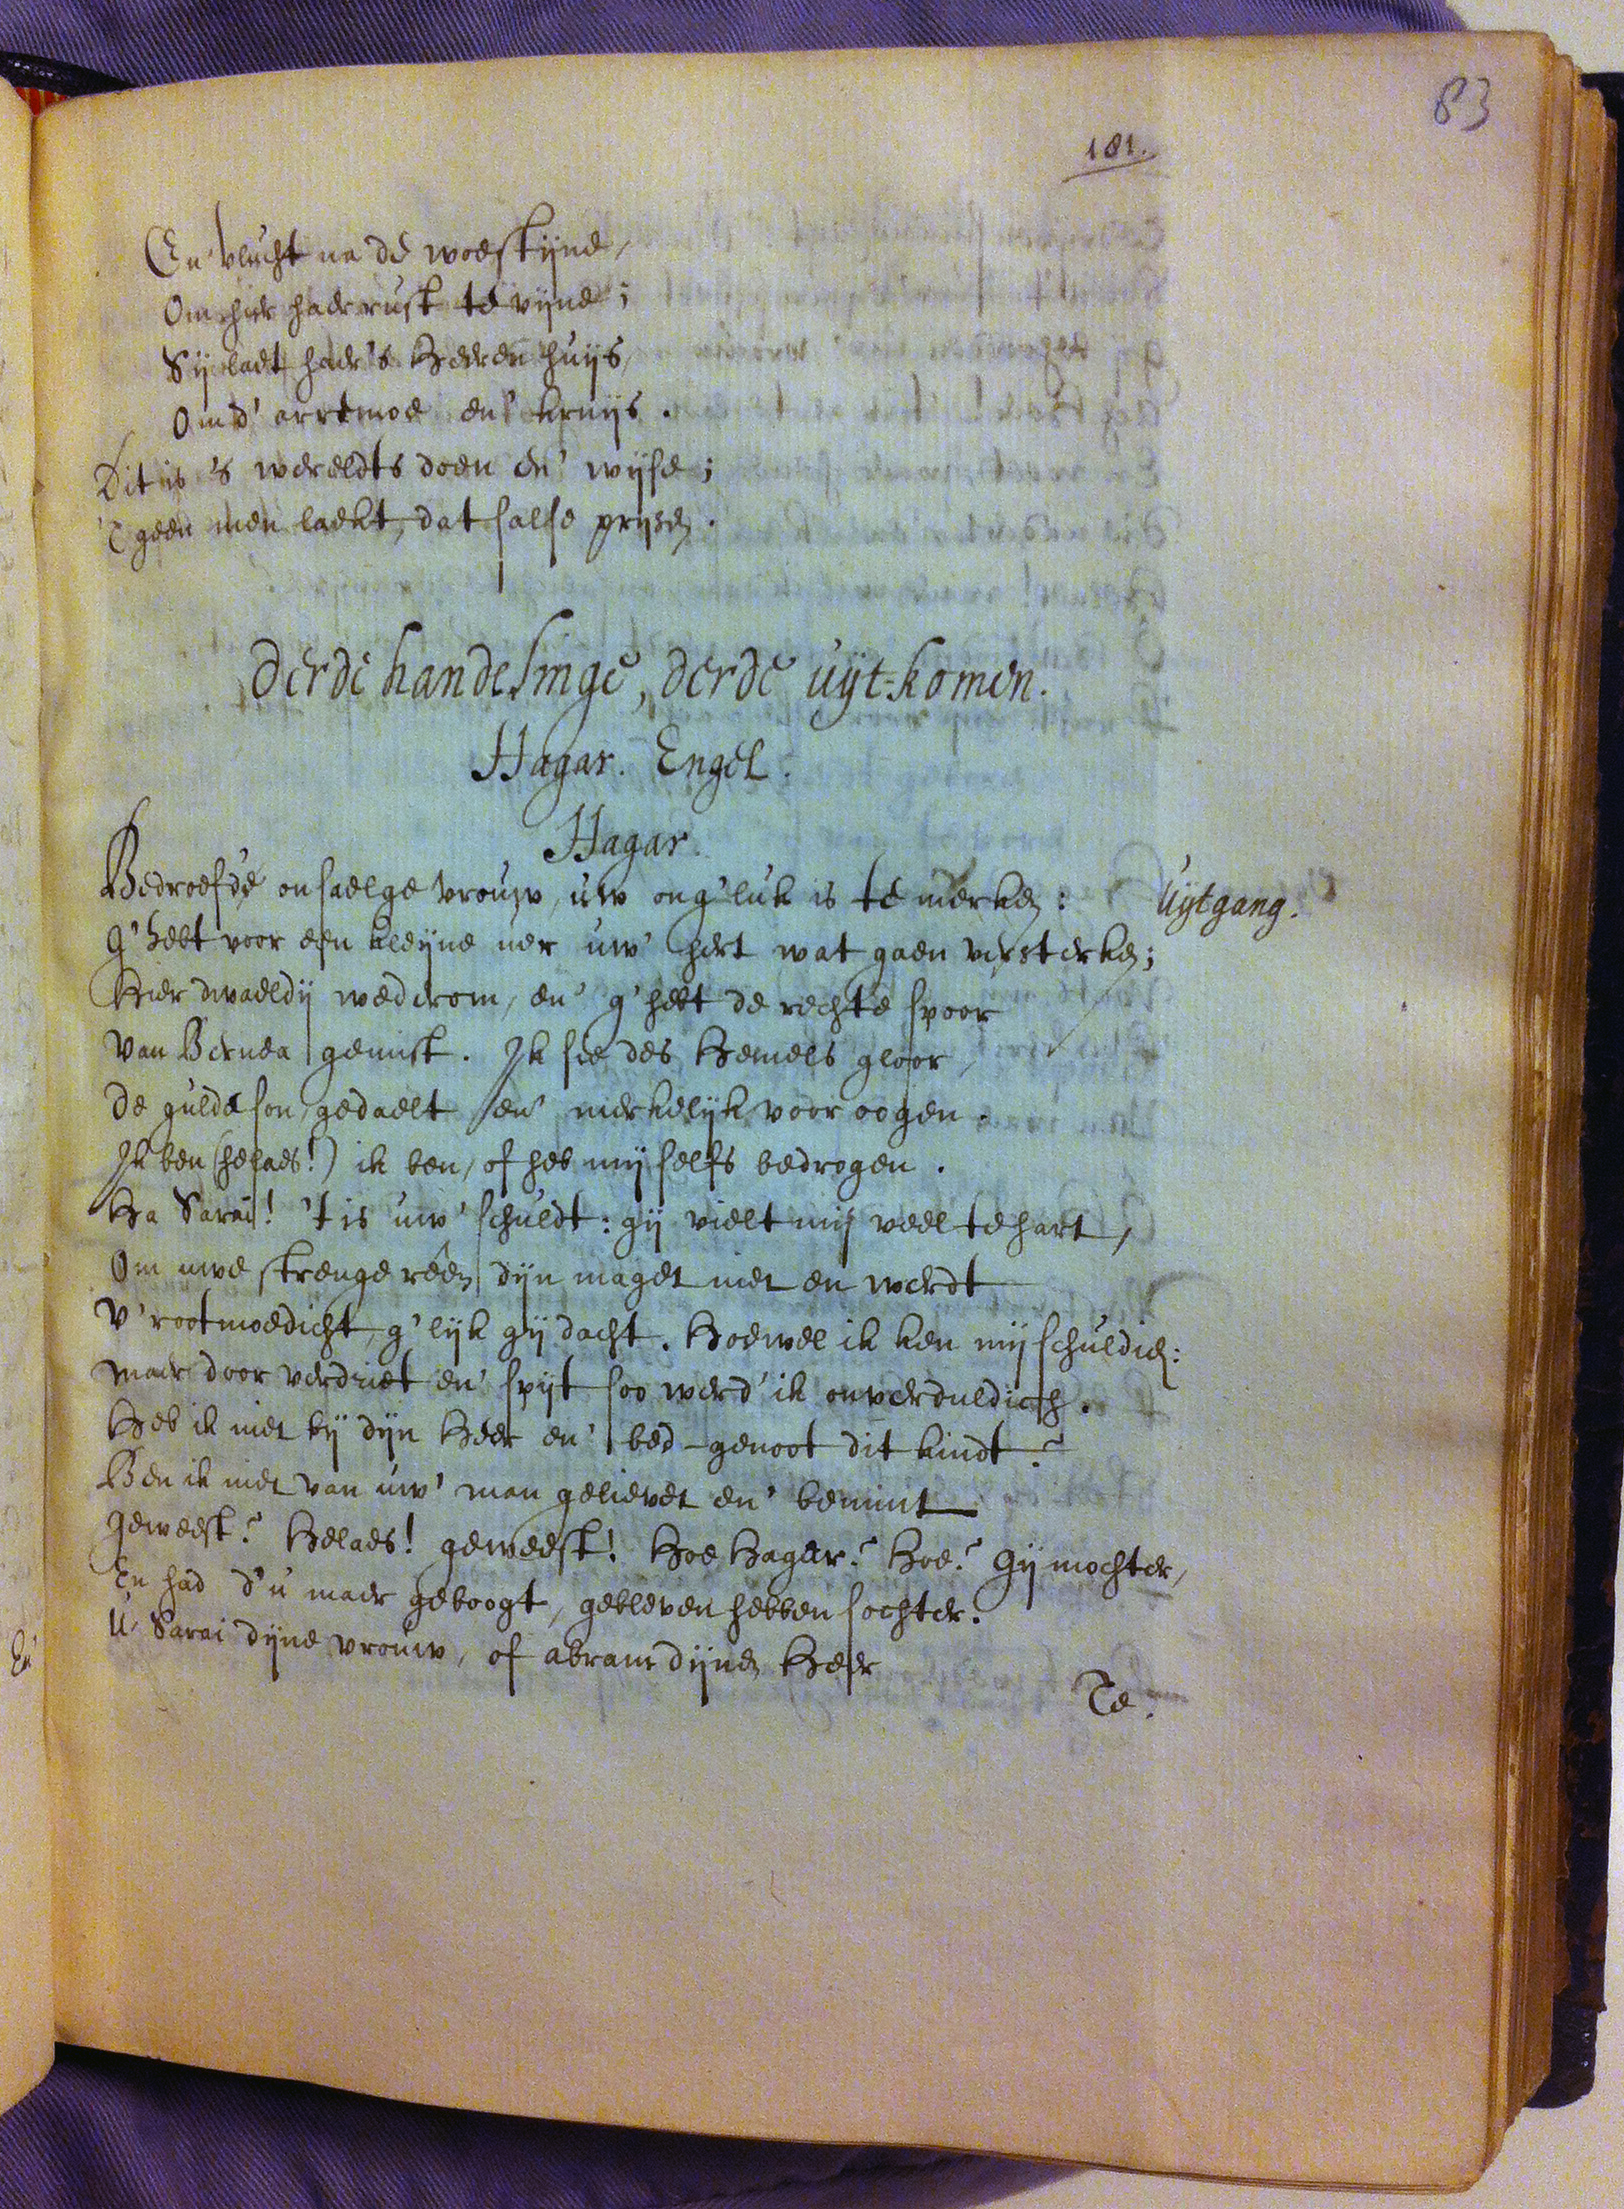 83
181.
En vlucht na de woestijne,
Om hier haer rust te vijne;
Sij laet haer 's Heeren huijs,
Om d' arremoe en' kruijs.
Dit is 's wereldts doen en' wijse;
'T geen men laekt, dat salse prijsen.
Derde handelinge, derde uijt-komen.
Hagar. Engel.
Hagar.
Bedroefde onsaelge vrouw, uw ong'luk is te merken: Uijtgang.
G'hebt voor een kleijne uer uw' hert wat gaen versterken;
Hier dwaeldij wederom, en' g'hebt de rechte spoor
Van Bernea gemist. Ik sie des Hemels gloor,
De gulde son, gedaelt en' merkelijk voor oogen.
Ik ben (helaes!) ik ben, of heb mij selfs bedrogen.
Ha Sarai! 't is uw' schuldt: gij vielt mij veel te hart,
Om uwe strenge reên dijn maget niet en werdt
V'rootmoedicht, g'lijk gij dacht. Hoewel ik ken mij schuldich:
Maer door verdriet en' spijt soo werd' ik onverduldich.
Heb ik niet bij dijn Heer en' bed-genoot dit kindt?
Ben ik niet van uw' man gelievet en' bemint
Geweest? Helaes! geweest! Hoe Hagar? Hoe? Gij mochter,
En had d'u maer geboogt, gebleven hebben sochter.
U Sarai dijne vrouw, of Abram dijnen Heer
Te